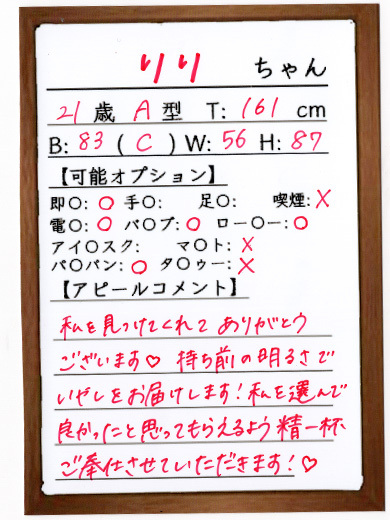 りり ちゃん
21 歳 A 型 T: 161 cm
B: 83 ( C ) W: 56 H: 87
【可能オプション】
即〇: 〇 手〇: 足〇: 喫煙: X
電〇: 〇 バ〇ブ: 〇 ロー〇ー: 〇
アイ〇スク: マ〇ト: X
パ〇パン: 〇 タ〇ゥー: X
【アピールコメント】
私を見つけてくれて ありがとう
ございます♡ 持ち前の明るさで
いやしをお届けします! 私を選んで
良かったと思ってもらえるよう精一杯
ご奉仕させていただきます!♡